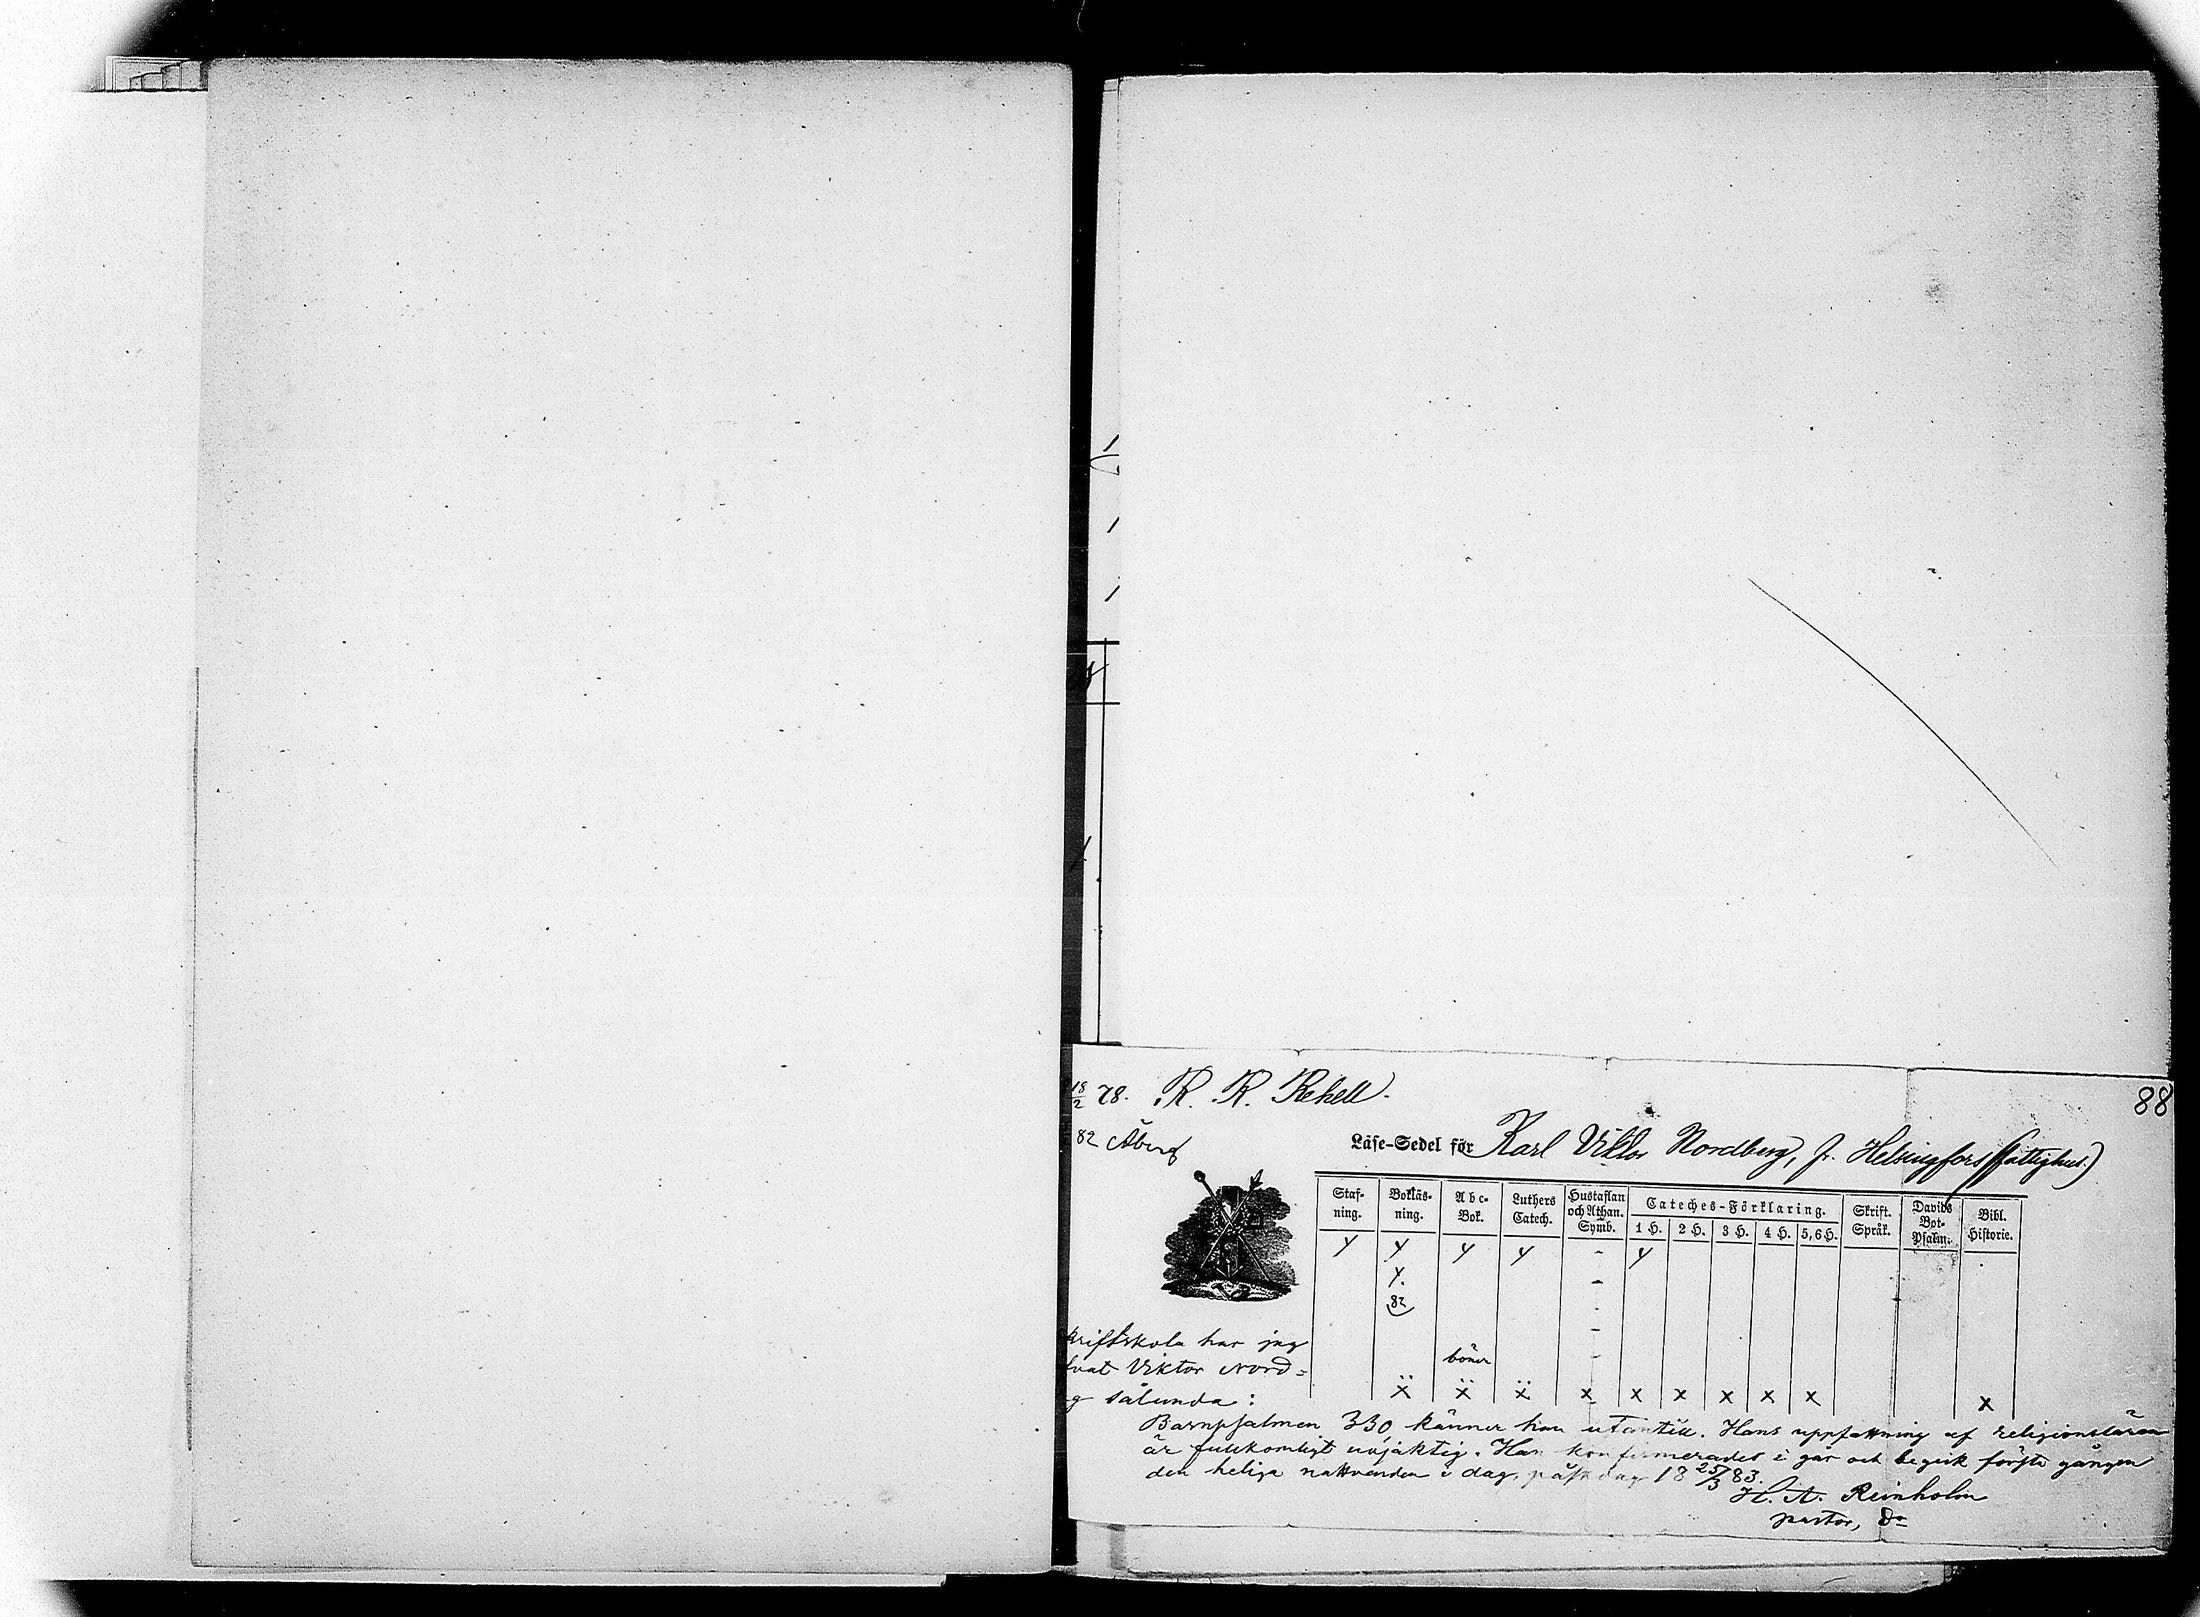 18/2 78. R. R. Rehell.
88
82 Åberg
Läse-Sedel för Karl Viktor Nordberg, fr. Helsingfors (fattighus.)
Staf-ning. Bokläs-ning. Abc-Bok. Luthers Catech. Hustaflan och Athan. Symb. Cateches-Förklaring. Skrift. Språk. Davids Bot-Psalm. Bibl. Historie.
1 H. 2 H. 3 H. 4 H. 5, 6 H.
82
kriftskola har jag
böner
Viktor Nord-
g sålunda:
x x x x x x x x x x
Barnpsalmen 330 känner han utantill. Hans uppfattning af religionsläran
är fullkomligt oväjaktig. Han konfirmerades i går och begick första gången
den heliga nattvarden i dag, påskdag 18 25/3 83.
H. A. Reinholm
pastor,